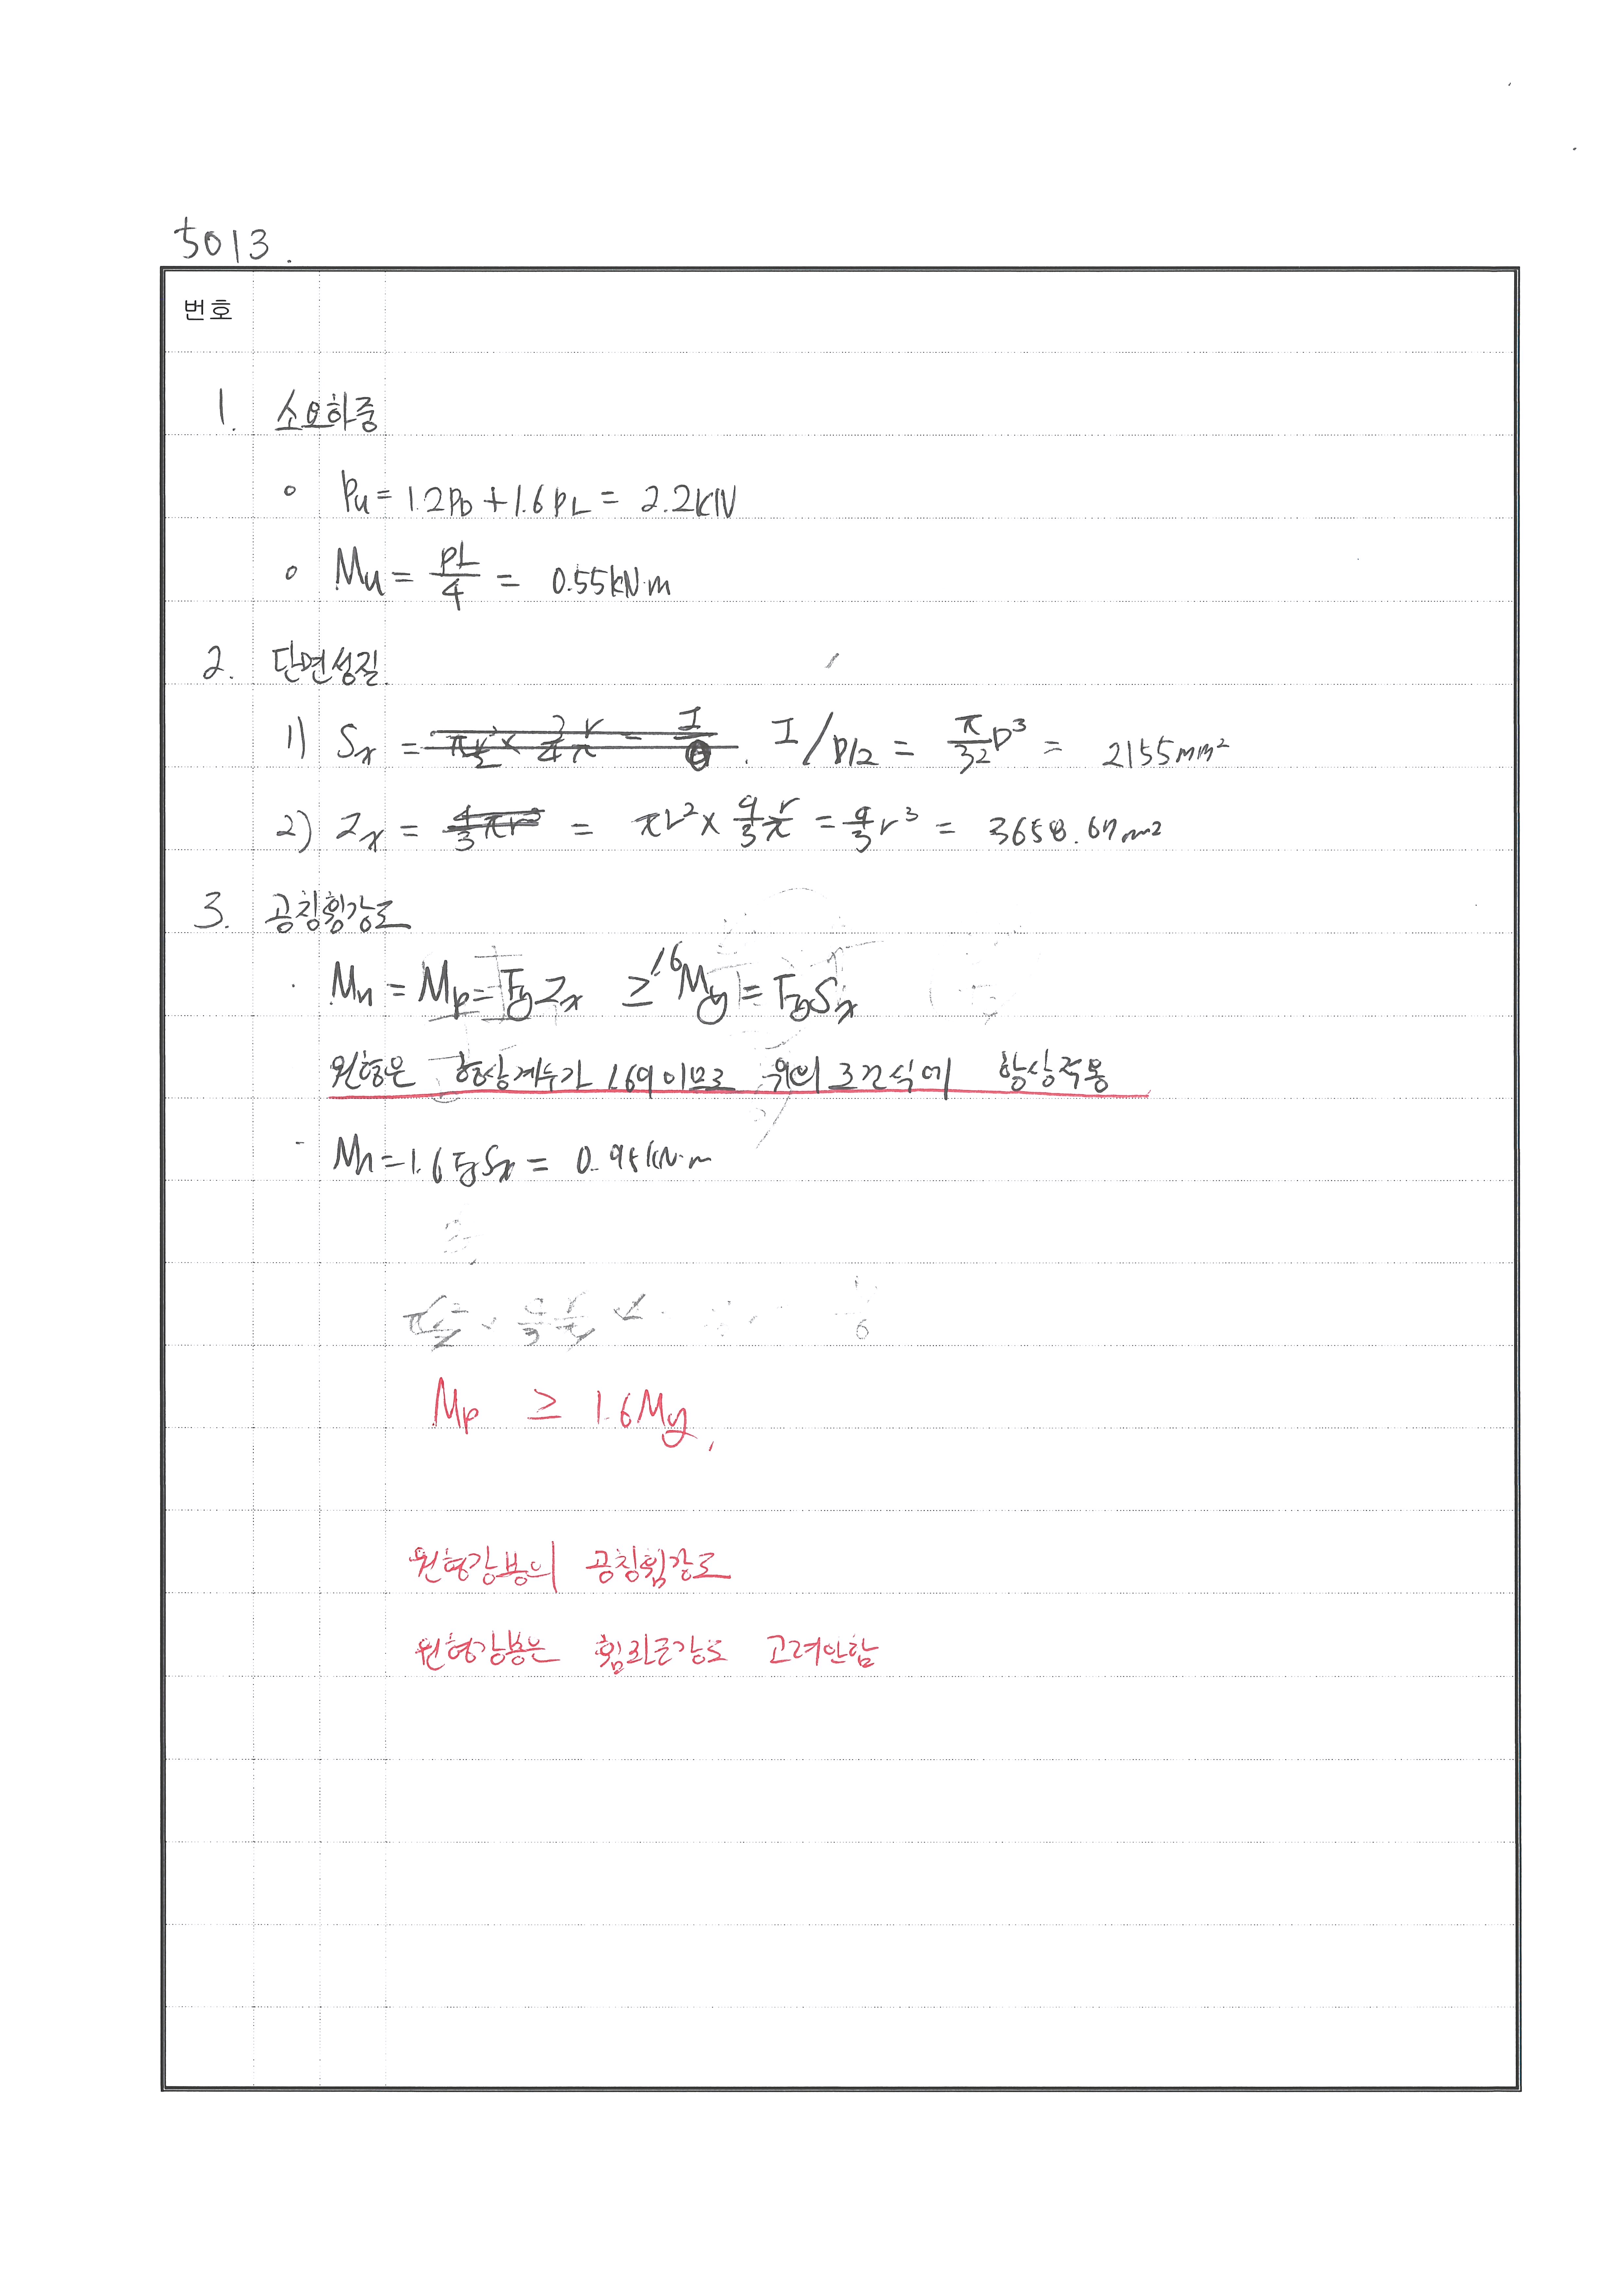 5013.
번호
1. 소요하중
∘ Pu = 1.2PD + 1.6PL = 2.2kN
∘ Mu = PL/4 = 0.55kN·m
2. 단면성질
1) Sx = I / D/2 = π/32 D³ = 2155mm²
2) Zx = = πr² × 4/3 r/π = 4/3 r³ = 3658.67mm²
3. 공칭휨강도
· Mn = Mp = FyZx ≥ 1.6 My = FySx
원형은 형상계수가 1.69이므로 위의 조건식에 항상적용
- Mn = 1.6FySx = 0.95kN·m
Mp ≥ 1.6My,
원형강봉의 공칭휨강도
원형강봉은 휨좌굴강도 고려안함